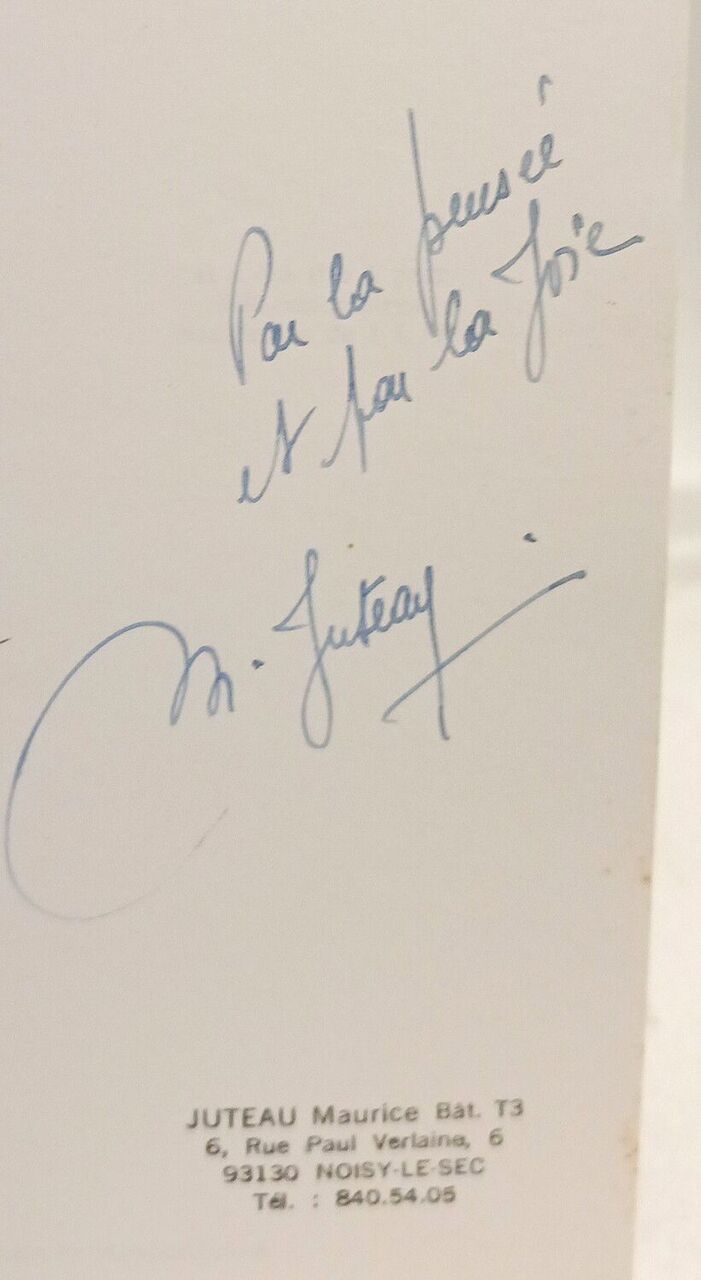 Par la pensée
et par la Joie
M. Juteau
JUTEAU Maurice Bât. T3
6, Rue Paul Verlaine, 6
93130 NOISY-LE-SEC
Tél. : 840.54.05